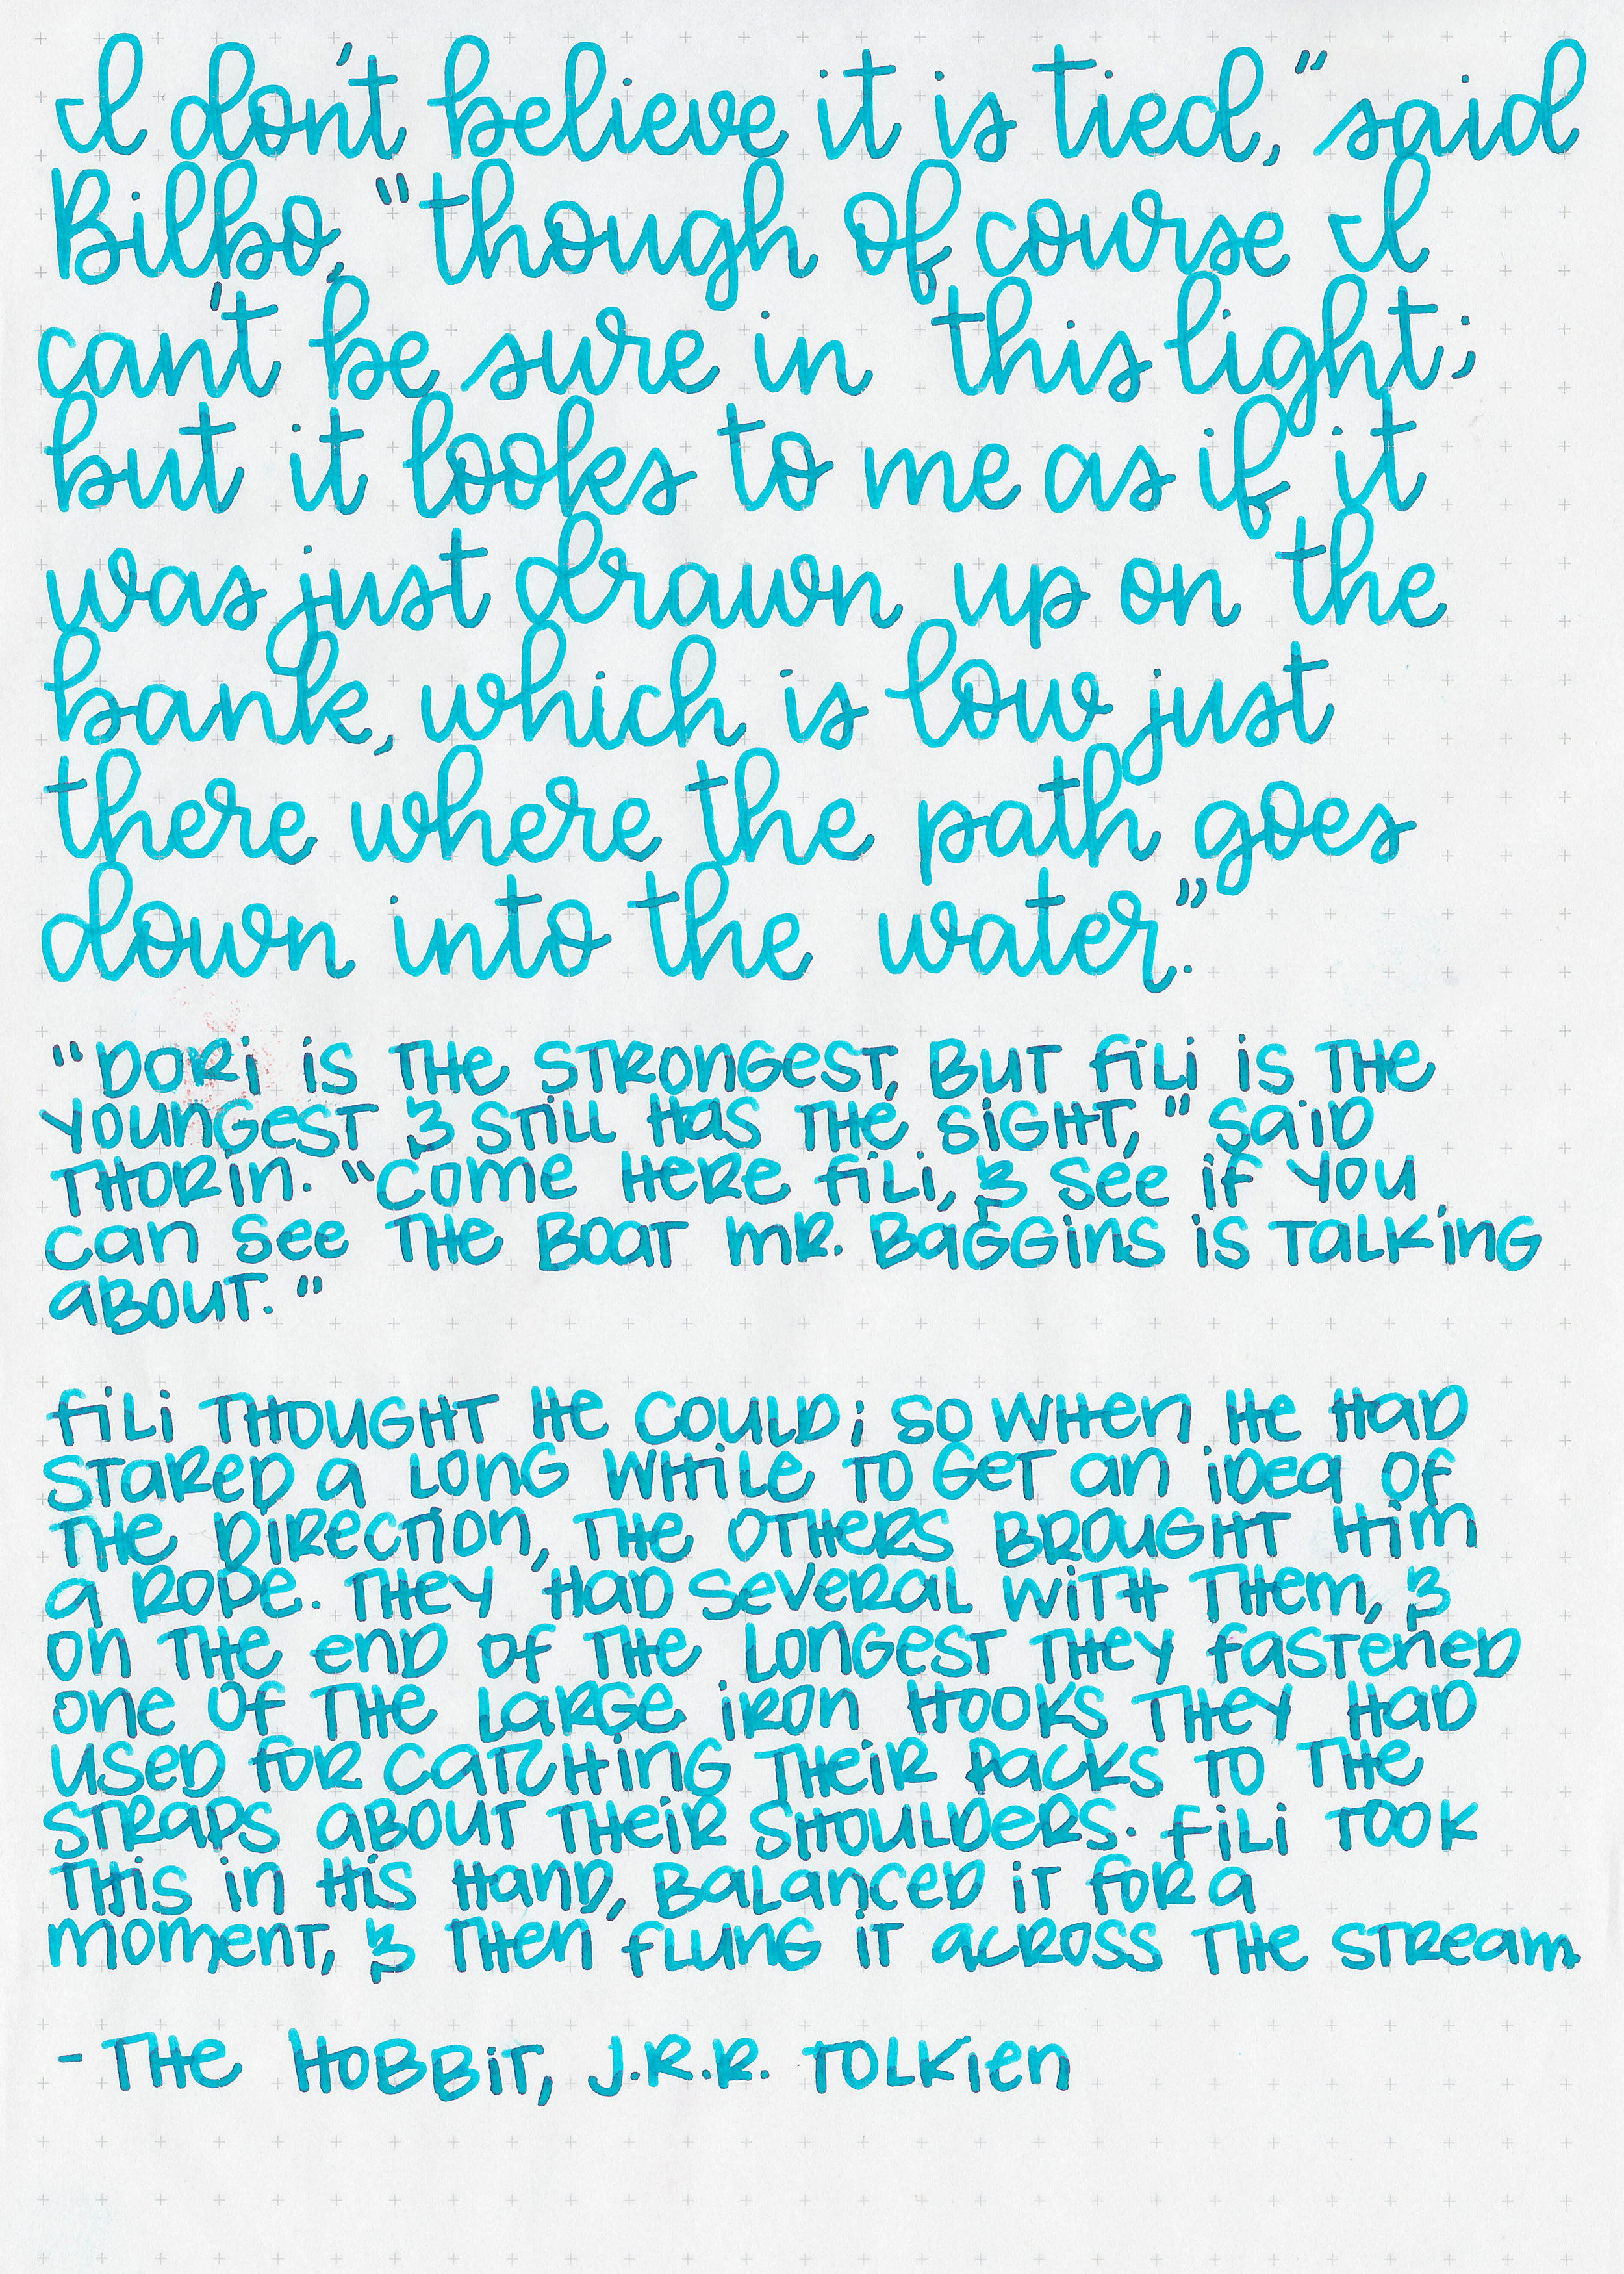 I don't believe it is tied," said
Bilbo, "though of course I
can't be sure in this light;
but it looks to me as if it
was just drawn up on the
bank, which is low just
there where the path goes
down into the water."
"Dori is the strongest, but Fili is the
youngest & still has the sight," said
Thorin. "Come here Fili, & see if you
can see the boat Mr. Baggins is talking
about."
Fili thought he could; so when he had
stared a long while to get an idea of
the direction, the others brought him
a rope. They had several with them, &
on the end of the longest they fastened
one of the large iron hooks they had
used for catching their packs to the
straps about their shoulders. Fili took
this in his hand, balanced it for a
moment, & then flung it across the stream.
- The Hobbit, J.R.R. Tolkien